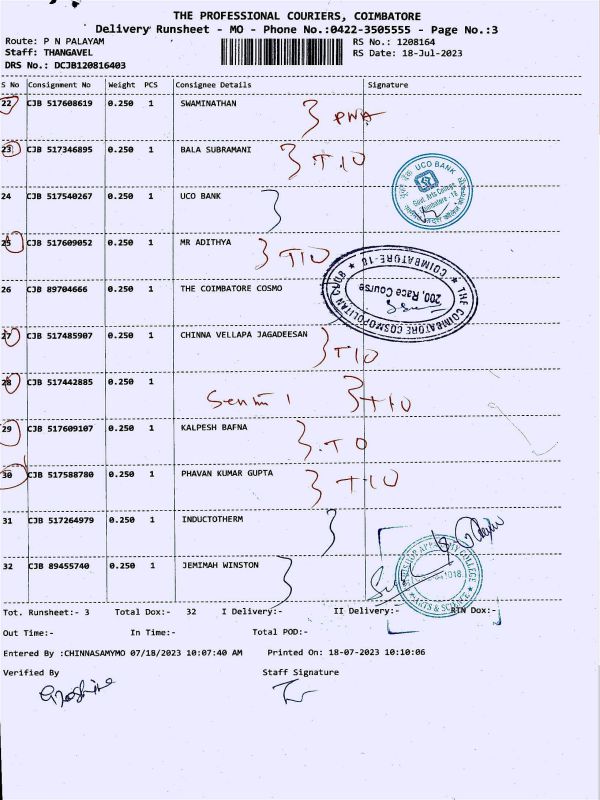 THE PROFESSIONAL COURIERS, COIMBATORE
Delivery Runsheet - MO - Phone No.:0422-3505555 - Page No.:3
Route: P N PALAYAM RS No.: 1208164
Staff: THANGAVEL RS Date: 18-Jul-2023
DRS No.: DCJB120816403
S No Consignment No Weight PCS Consignee Details Signature
22 CJB 517608619 0.250 1 SWAMINATHAN
23 CJB 517346895 0.250 1 BALA SUBRAMANI
UCO BANK
24 CJB 517540267 0.250 1 UCO BANK
25 CJB 517609052 0.250 1 MR ADITHYA
26 CJB 89704666 0.250 1 THE COIMBATORE COSMO
THE COIMBATORE COSMOPOLITAN CLUB ★ COIMBATORE-18 ★
200, Race Course
27 CJB 517485907 0.250 1 CHINNA VELLAPA JAGADEESAN
28 CJB 517442885 0.250 1
29 CJB 517609107 0.250 1 KALPESH BAFNA
30 CJB 517588780 0.250 1 PHAVAN KUMAR GUPTA
31 CJB 517264979 0.250 1 INDUCTOTHERM
32 CJB 89455740 0.250 1 JEMIMAH WINSTON
ARTS & SCIENCE
Tot. Runsheet:- 3 Total Dox:- 32 I Delivery:- II Delivery:- RTN Dox:-
Out Time:- In Time:- Total POD:-
Entered By :CHINNASAMYMO 07/18/2023 10:07:40 AM Printed On: 18-07-2023 10:10:06
Verified By Staff Signature